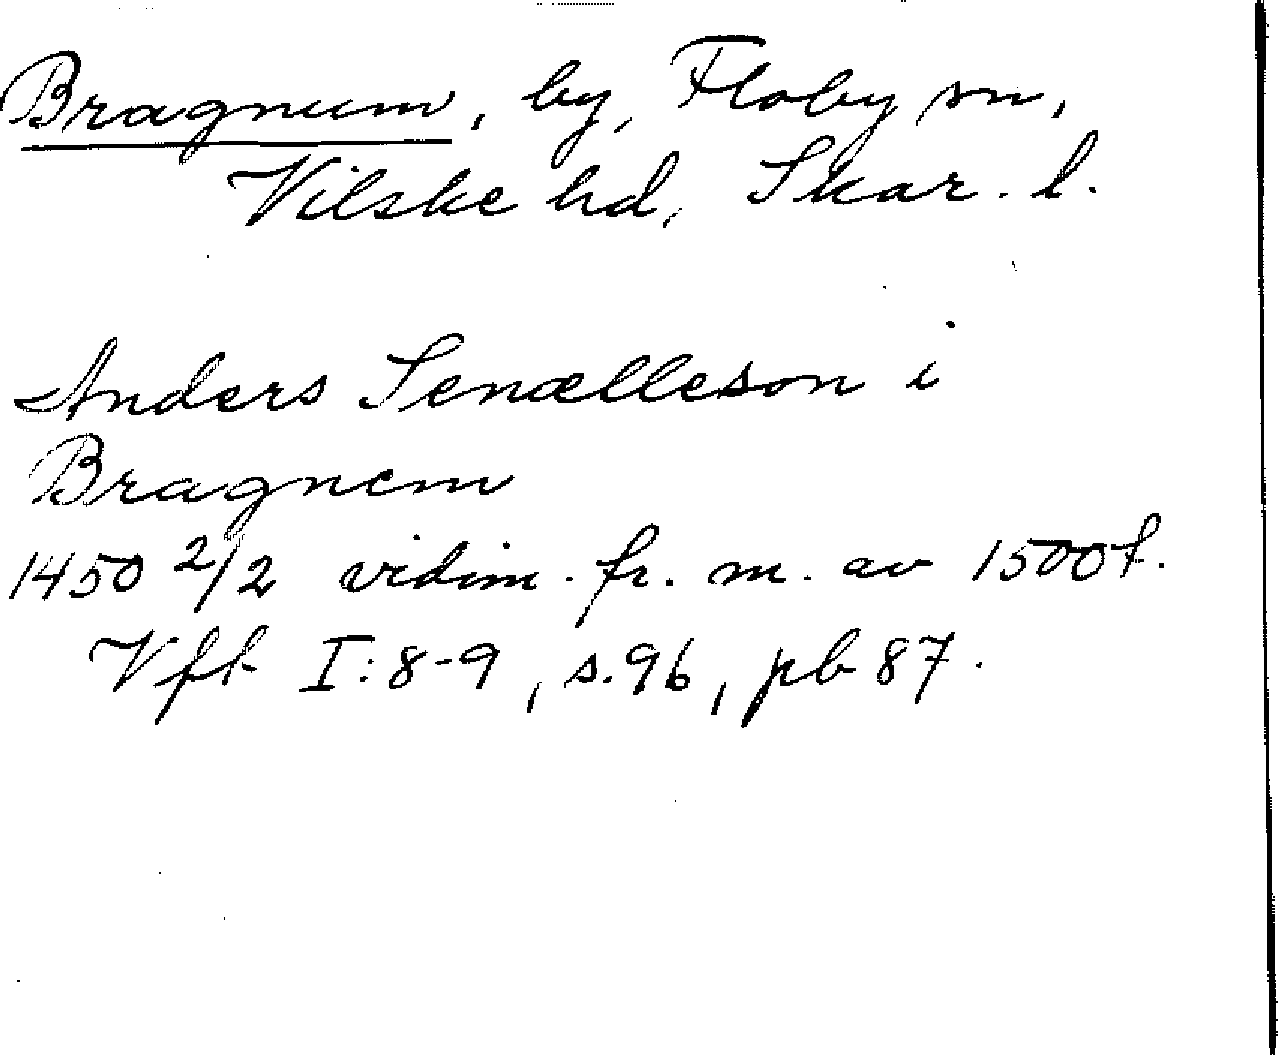 Bragnum, by, Floby sn,
Vilske hd, Skar. l.
Anders Senælleson i
Bragnem
1450 2/2 vidim. fr. m. av 1500t.
Vft I: 8-9, s. 96, pb 87.